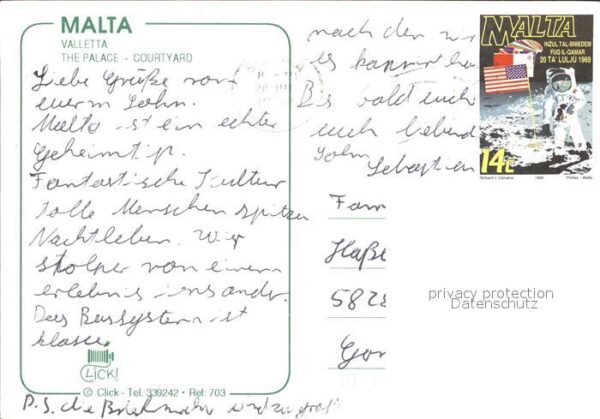 MALTA
VALLETTA
THE PALACE - COURTYARD
Liebe Grüße von
eurem Sohn.
Malta ist ein echter
Geheimtip.
Fantastische Kultur
tolle Menschen spitzen
Nachtleben. Wir
stolper von einem
erlebnis ins andr.
Das Bussystem ist
klasse.
CLICK!
© Click - Tel. 339242 • Ref: 703
P.S. die Briefmarke
nach der
es
Bis bald euch
euch liebend
Sohn
Sebastian
MALTA
INZUL TAL-BNIEDEM
FUQ IL-QAMAR
20 TA' LULJU 1969
14c
Richard J. Caruana 1994 Printex - Malta
Fam
Haße
5828
Gor
privacy protection
Datenschutz